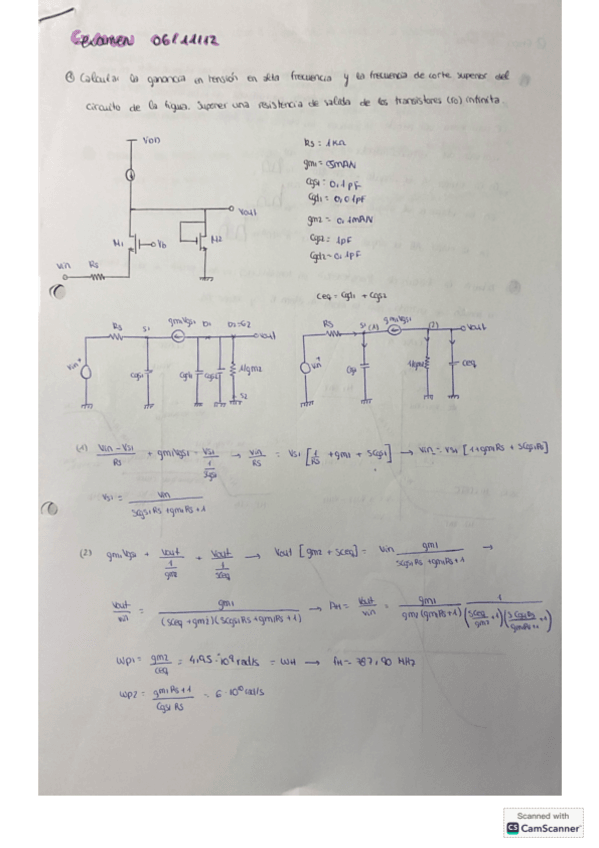 Examen 06/11/12
① Calcular la ganancia en tensión en alta frecuencia y la frecuencia de corte superior del
circuito de la figura. Suponer una resistencia de salida de los transistores (ro) infinita.
VDD
Rs = 1KΩ
gm1 = 5mA/V
Cgs1 = 0,1pF
Cgd1 = 0,01pF
gm2 = 0,1mA/V
Cgs2 = 1pF
Cgd2 = 0,1pF
Vout
M1
Vb
M2
Vin Rs
Ceq = Cgd1 + Cgs2
Rs S1 gm1Vgs1 D1 D2=G2 Vout
Vin Cgs1 Cgd1 Cgs2 1/gm2
S2
Rs S1 (1) gm1Vgs1 (2) Vout
Vin Cgs1 1/gm2 Ceq
(1) Vin - Vs1 / Rs + gm1Vgs1 = Vs1 / 1/SCgs1 → Vin / Rs = Vs1 [1/Rs + gm1 + SCgs1] → Vin = Vs1 [1+gm1Rs + SCgs1Rs]
Vs1 = Vin / SCgs1Rs + gm1Rs + 1
(2) gm1Vgs1 + Vout / 1/gm2 + Vout / 1/SCeq → Vout [gm2 + SCeq] = Vin gm1 / SCgs1Rs + gm1Rs + 1 →
Vout / Vin = gm1 / (SCeq + gm2)(SCgs1Rs + gm1Rs + 1) → AH = Vout / Vin = gm1 / gm2 (gm1Rs+1) 1 / (SCeq/gm2 + 1)(SCgs1Rs/gm1Rs+1 + 1)
Wp1 = gm2 / Ceq = 4,95·10⁹ rad/s = WH → fH = 787,90 MHz
Wp2 = gm1Rs+1 / Cgs1Rs = 6·10¹⁰ rad/s
Scanned with
CS CamScanner